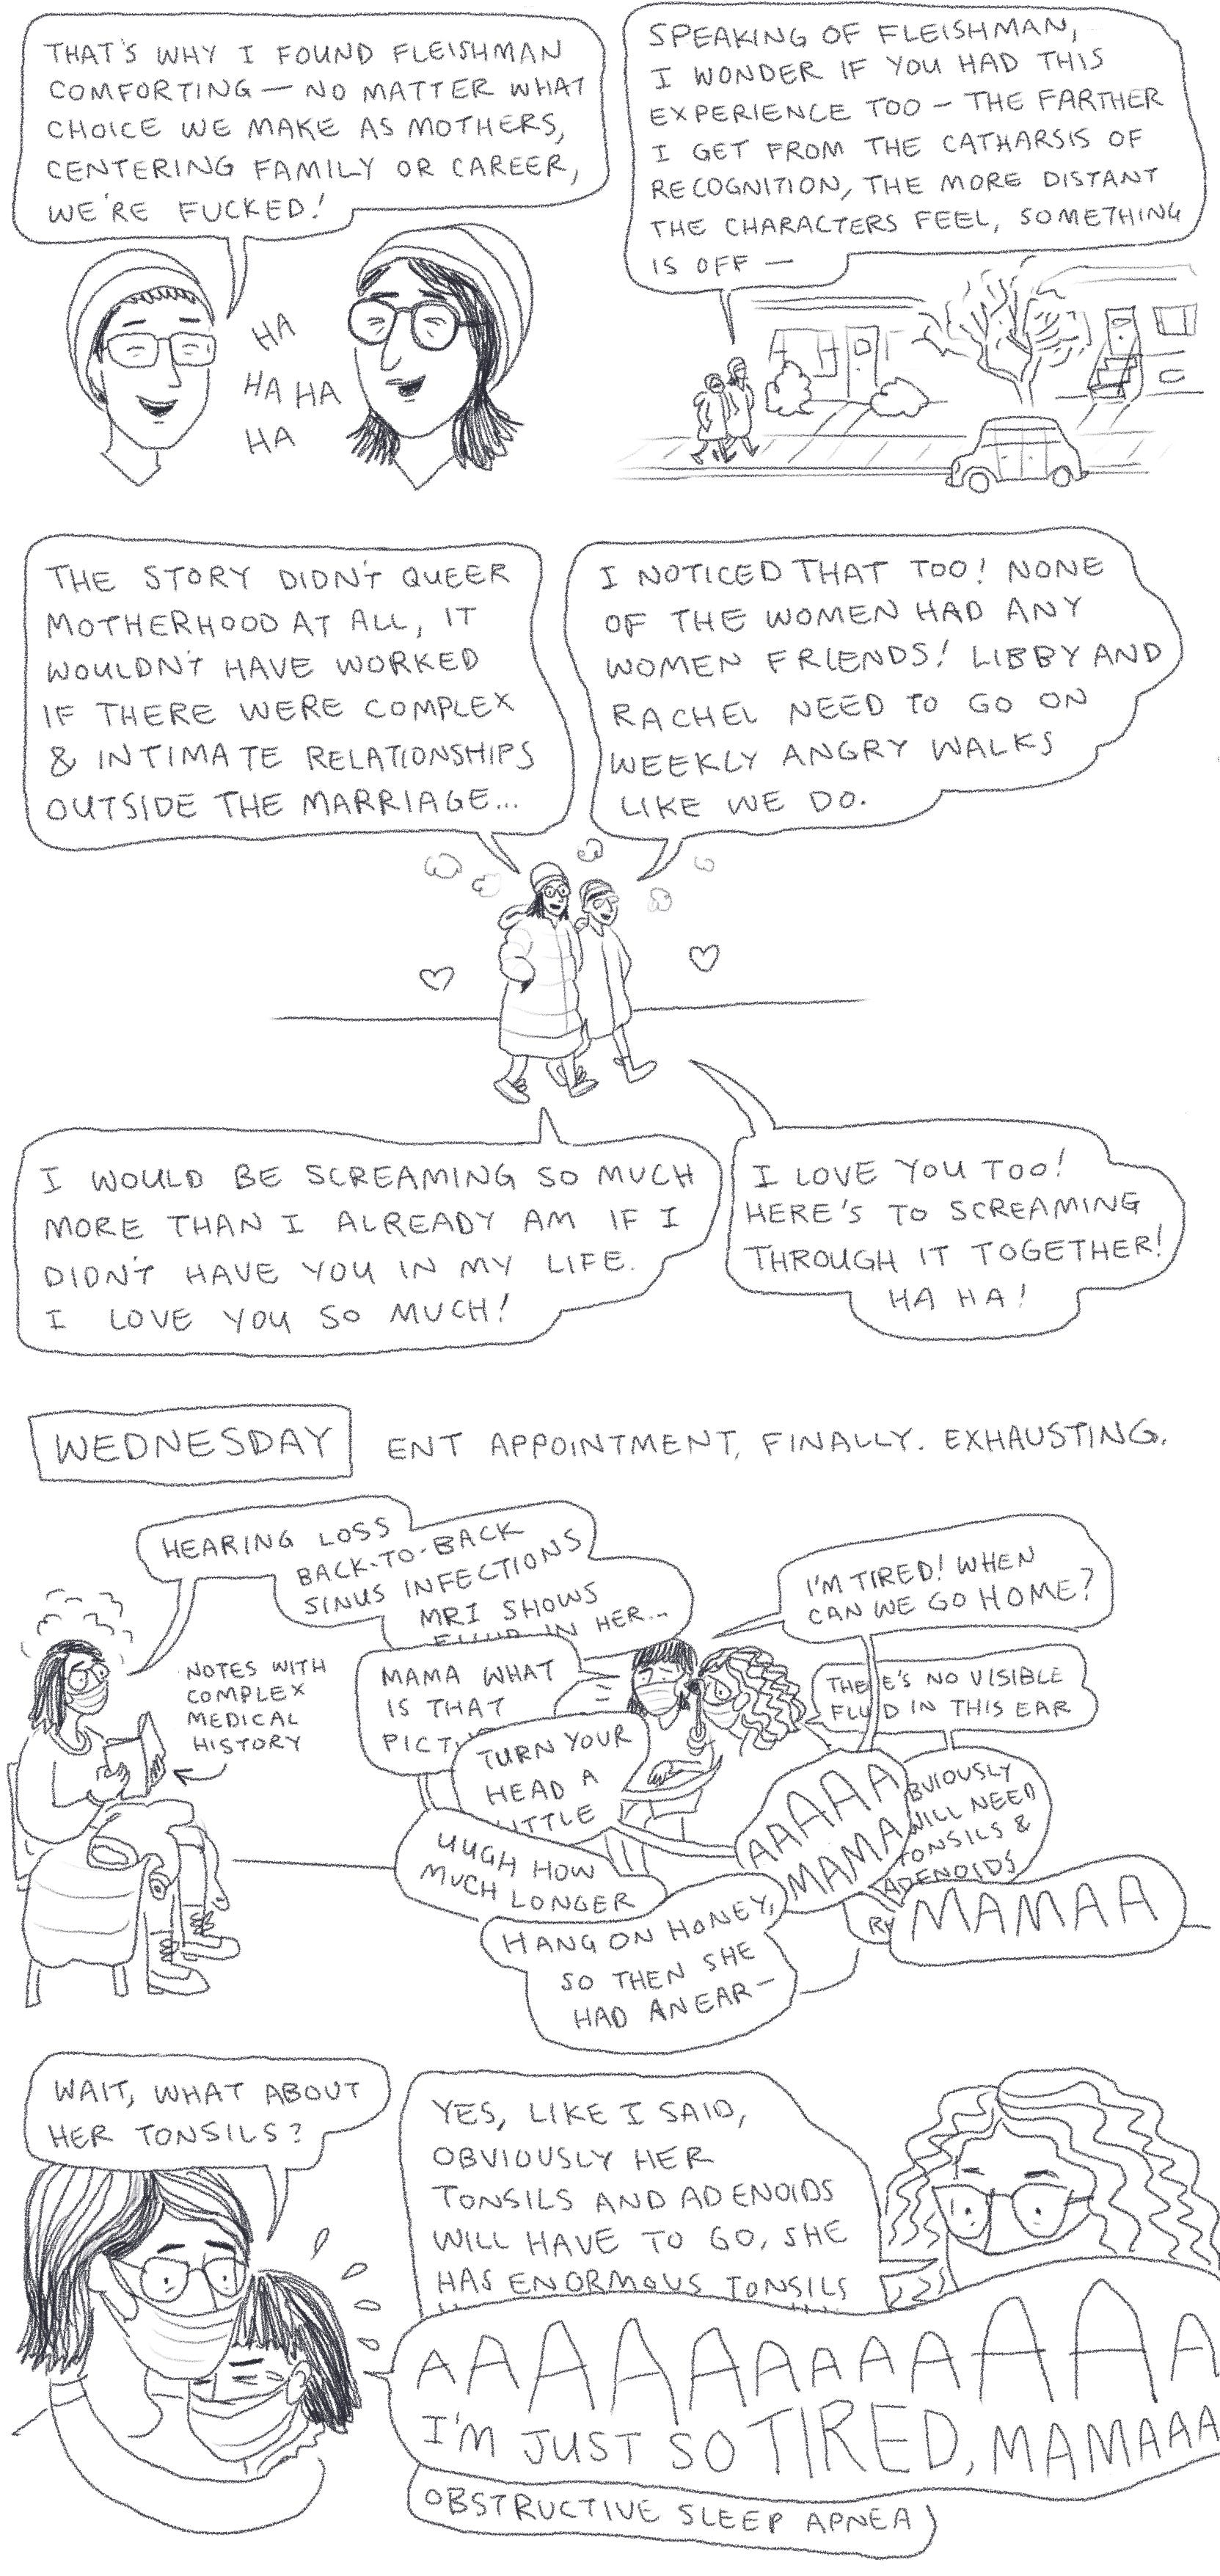 THAT'S WHY I FOUND FLEISHMAN
COMFORTING — NO MATTER WHAT
CHOICE WE MAKE AS MOTHERS,
CENTERING FAMILY OR CAREER,
WE'RE FUCKED!
HA
HA HA
HA
SPEAKING OF FLEISHMAN,
I WONDER IF YOU HAD THIS
EXPERIENCE TOO — THE FARTHER
I GET FROM THE CATHARSIS OF
RECOGNITION, THE MORE DISTANT
THE CHARACTERS FEEL, SOMETHING
IS OFF —
THE STORY DIDN'T QUEER
MOTHERHOOD AT ALL, IT
WOULDN'T HAVE WORKED
IF THERE WERE COMPLEX
& INTIMATE RELATIONSHIPS
OUTSIDE THE MARRIAGE...
I NOTICED THAT TOO! NONE
OF THE WOMEN HAD ANY
WOMEN FRIENDS! LIBBY AND
RACHEL NEED TO GO ON
WEEKLY ANGRY WALKS
LIKE WE DO.
I WOULD BE SCREAMING SO MUCH
MORE THAN I ALREADY AM IF I
DIDN'T HAVE YOU IN MY LIFE.
I LOVE YOU SO MUCH!
I LOVE YOU TOO!
HERE'S TO SCREAMING
THROUGH IT TOGETHER!
HA HA!
WEDNESDAY ENT APPOINTMENT, FINALLY. EXHAUSTING.
HEARING LOSS
BACK-TO-BACK
SINUS INFECTIONS
MRI SHOWS
FLUID IN HER...
I'M TIRED! WHEN
CAN WE GO HOME?
NOTES WITH
COMPLEX
MEDICAL
HISTORY
MAMA WHAT
IS THAT
PICTU
THERE'S NO VISIBLE
FLUID IN THIS EAR
TURN YOUR
HEAD A
LITTLE
AAAAA
MAMA
BVIOUSLY
WILL NEED
TONSILS &
ADENOIDS
UUGH HOW
MUCH LONGER
MAMAA
HANG ON HONEY,
SO THEN SHE
HAD AN EAR—
WAIT, WHAT ABOUT
HER TONSILS?
YES, LIKE I SAID,
OBVIOUSLY HER
TONSILS AND ADENOIDS
WILL HAVE TO GO, SHE
HAS ENORMOUS TONSILS
AAAAAAAAAAAA
I'M JUST SO TIRED, MAMAAA
OBSTRUCTIVE SLEEP APNEA